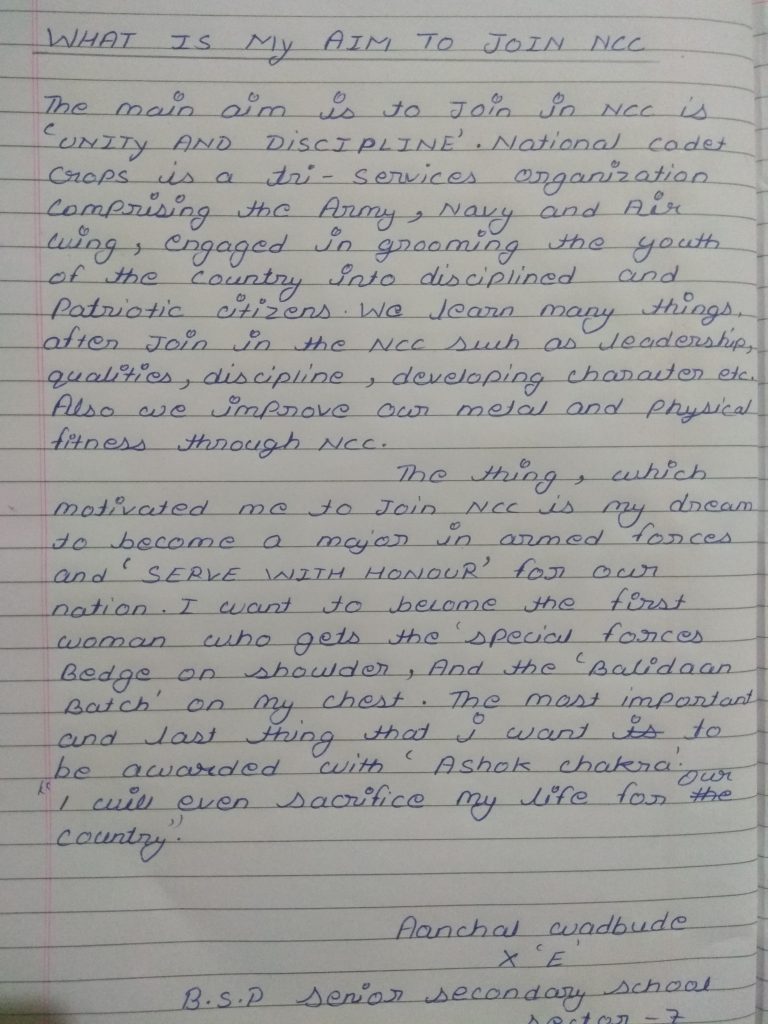 WHAT IS My AIM TO JOIN NCC
The main aim is to Join in NCC is
'UNITy AND DISCIPLINE'. National cadet
Crops is a tri - Services organization
comprising the Army, Navy and Air
wing, engaged in grooming the youth
of the country into disciplined and
Patriotic citizens. We learn many things,
after Join in the NCC such as leadership,
qualities, discipline, developing character etc.
Also we improve our metal and physical
fitness through NCC.
The thing, which
motivated me to Join NCC is my dream
to become a major in armed forces
and 'SERVE WITH HONOUR' for our
nation. I want to become the first
woman who gets the 'special forces
Bedge on shoulder, And the 'Balidaan
Batch' on my chest. The most important
and last thing that i want is to
be awarded with 'Ashok chakra'.
"I will even sacrifice my life for the our
country".
Aanchal wadbude
X 'E'
B.S.P senior secondary school
sector - 7